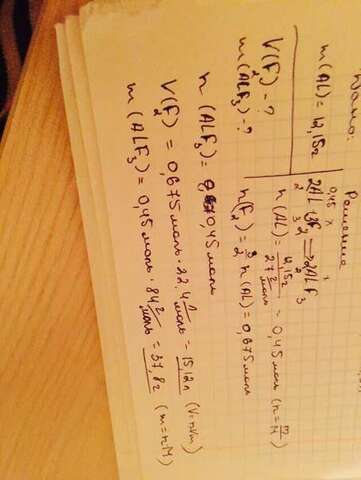 Дано:
m(AL)=12,15г
V(F₂)-?
m(ALF₃)-?
Решение
0,45 x
2AL+3F₂=>2ALF₃
2 3 2
n(AL)=12,15г/27 г/моль=0,45моль (n=m/M)
n(F₂)=3/2 n(AL)=0,675моль
n(ALF₃)=0,45моль
V(F₂)=0,675моль·22,4 л/моль=15,12л (V=nVm)
m(ALF₃)=0,45моль·84 г/моль=37,8г (m=nM)